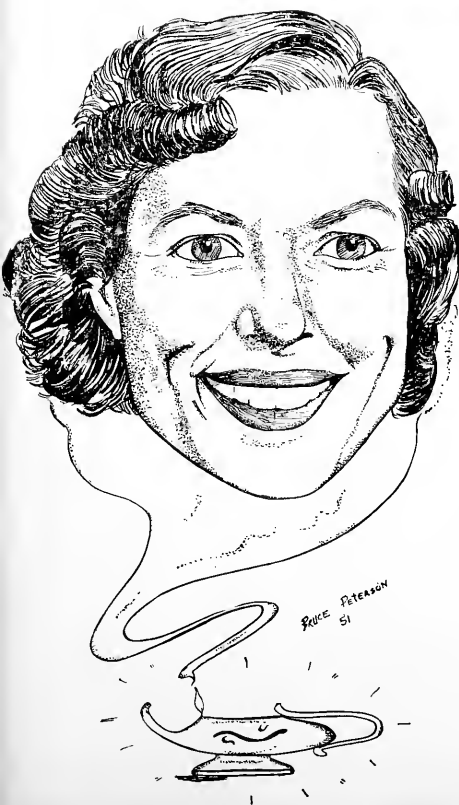 BRUCE PETERSON
51